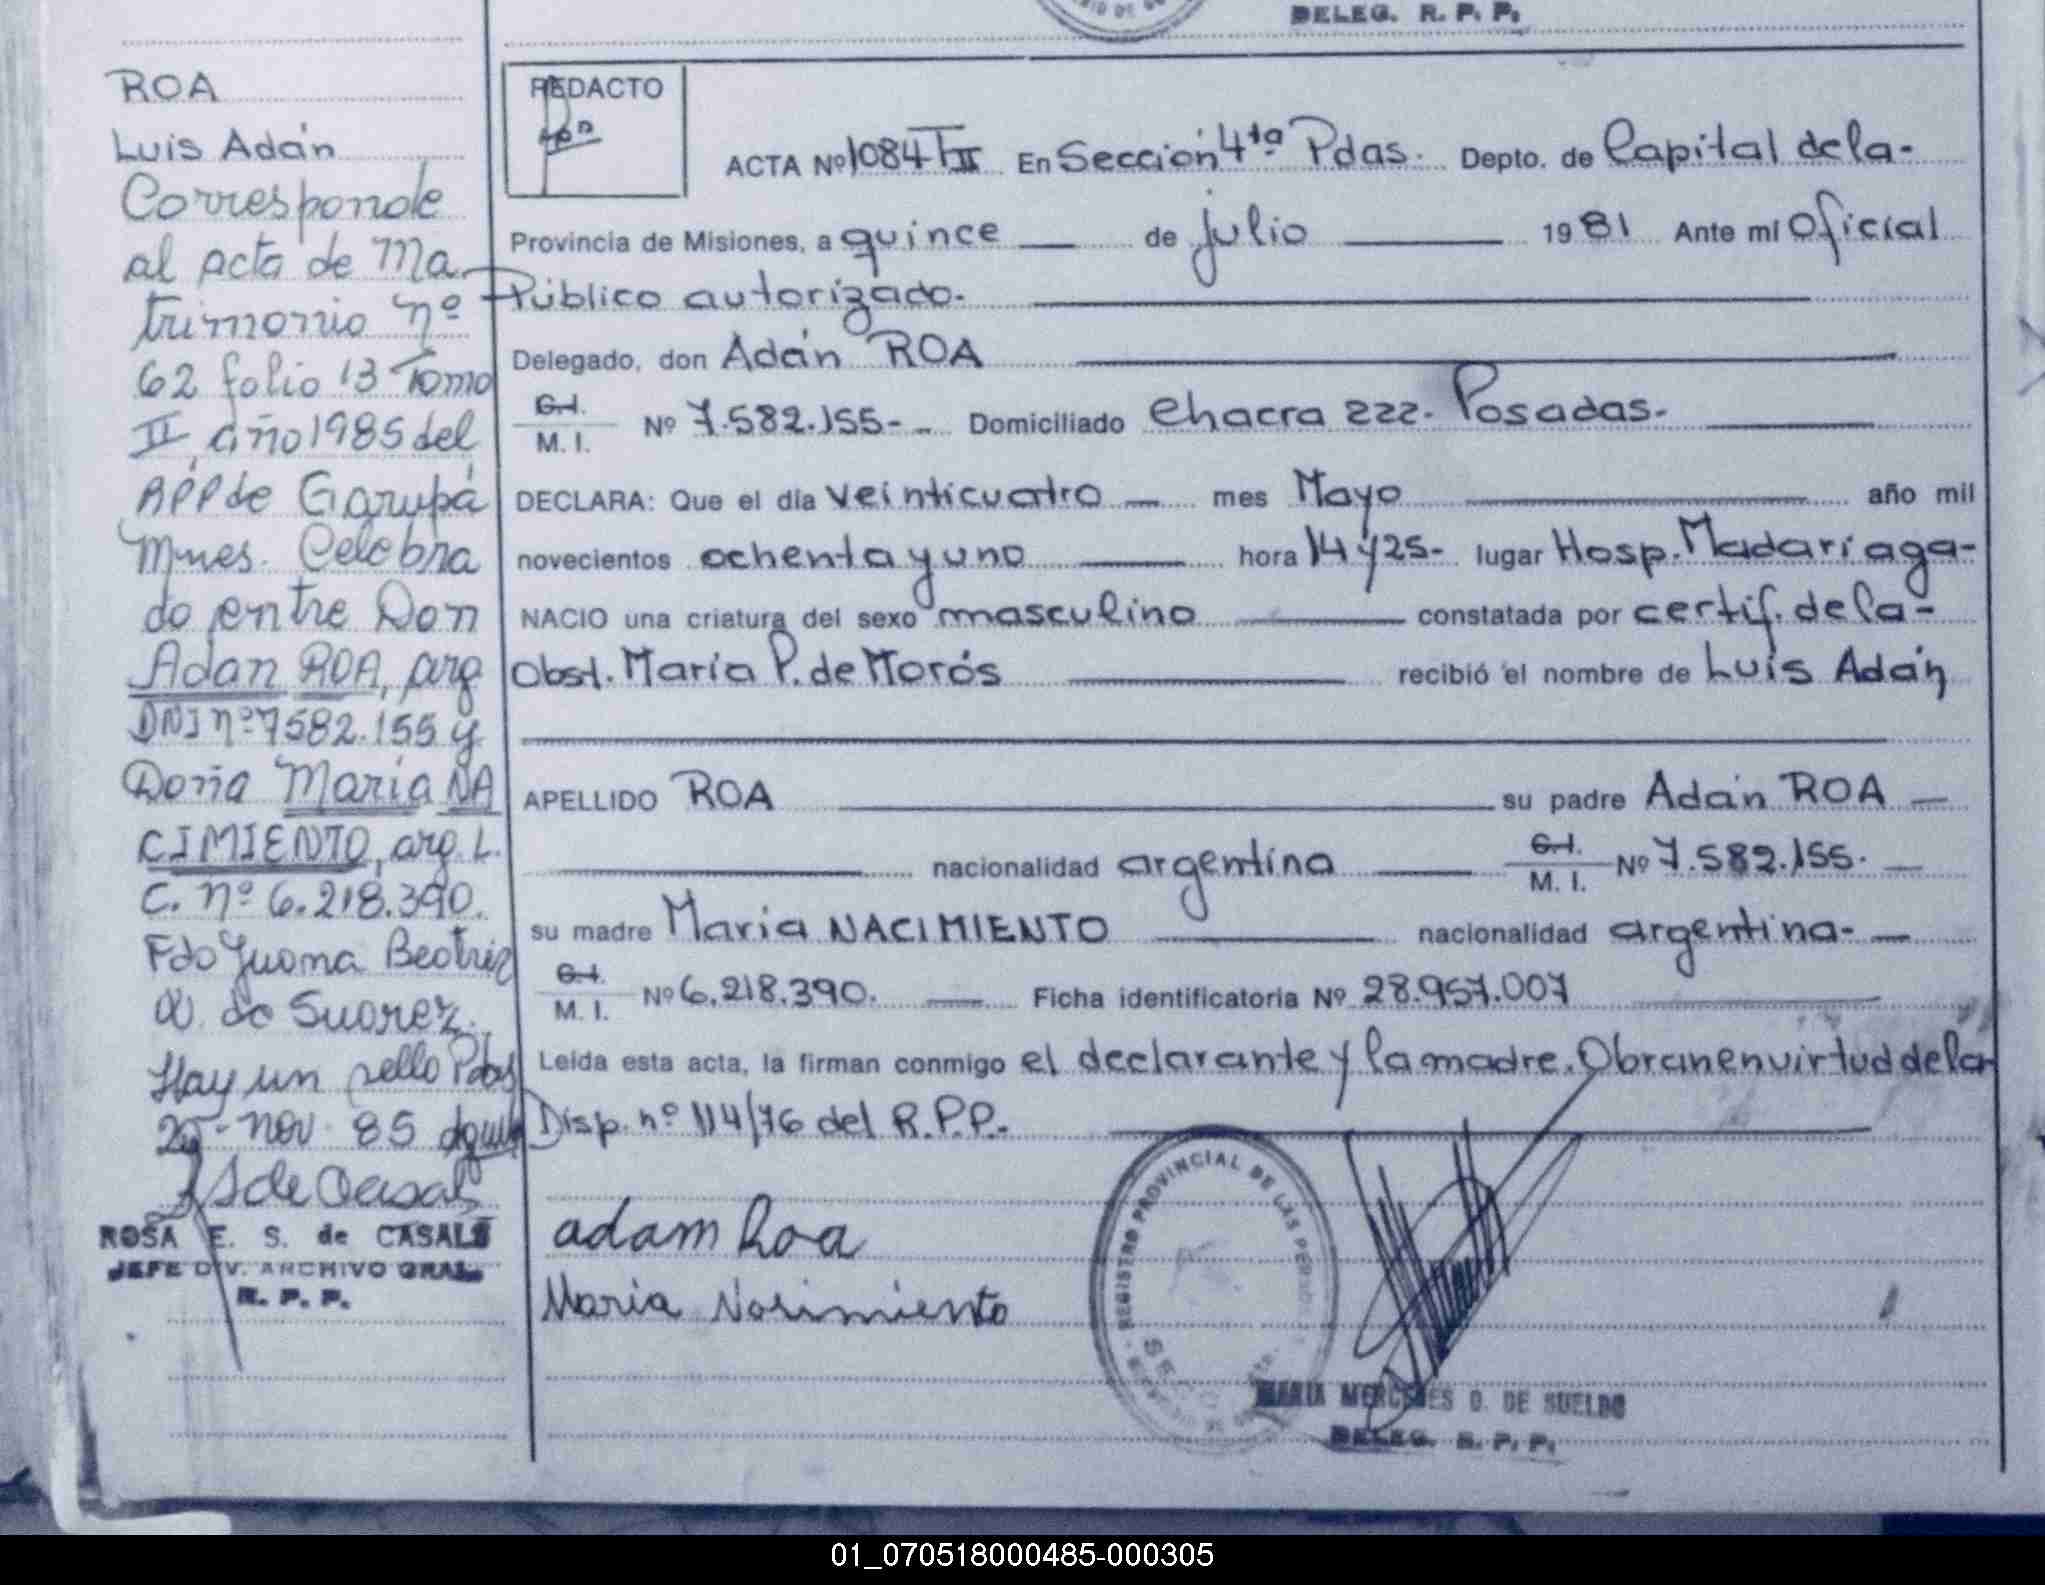 DELEG. R. P. P.
ROA
Luis Adán
Corresponde
al acta de Ma
trimonio nº
62 folio 13 Tomo
II, año 1985 del
RPP de Garupá
Mnes. Celebra
do entre Don
Adan ROA, arg
DNI nº 7582.155 y
Doña Maria NA
CIMIENTO, arg. L.
C. nº 6.218.390.
Fdo Juana Beatriz
de Suarez.
Hay un sello Pdas
25 - nov - 85
S de Casals
ROSA E. S. de CASALS
JEFE DIV. ARCHIVO GRAL.
R. P. P.
REDACTO
ACTA Nº 1084 TII En Sección 4ta Pdas. Depto. de Capital de la-
Provincia de Misiones, a quince de julio 1981 Ante mí Oficial
Público autorizado.
Delegado, don Adán ROA
C.I.
M. I. Nº 7.582.155-. Domiciliado Chacra 222. Posadas.
DECLARA: Que el día veinticuatro mes Mayo año mil
novecientos ochenta y uno hora 14 y 25- lugar Hosp. Madariaga-
NACIO una criatura del sexo masculino constatada por certif. de la-
Obst. María P. de Morós recibió el nombre de Luis Adán
APELLIDO ROA su padre Adán ROA
nacionalidad argentina C.I. M. I. Nº 7.582.155.
su madre María NACIMIENTO nacionalidad argentina-
C.I.
M. I. Nº 6.218.390. Ficha identificatoria Nº 28.957.007
Leída esta acta, la firman conmigo el declarante y la madre. Obran en virtud de la
Disp. nº 114/76 del R.P.P.-
adam Roa
Maria Nasimiento
REGISTRO PROVINCIAL DE LAS
MARIA MERCEDES O. DE SUELDO
DELEG. R. P. P.
01_070518000485-000305